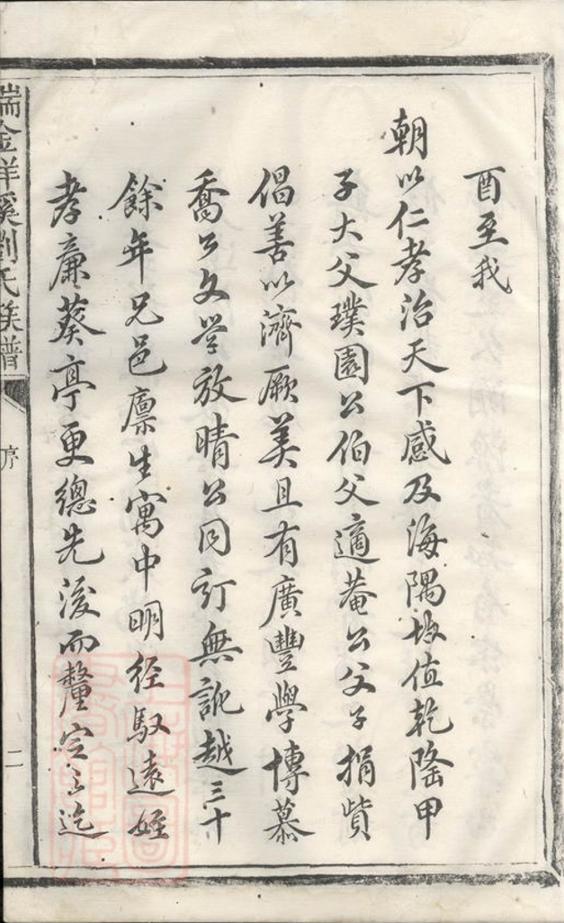 酉至我
朝以仁孝治天下感及海隅故值乾隆甲
子大父璞園公伯父適菴公父子捐貲
倡善以濟厥美且有廣豐學博慕
喬公文学放晴公同訂無訛越三十
餘年兄邑廩生寓中明经馭遠姪
孝廉葵亭更總先後而釐定之迄
瑞金洋溪劉氏族譜
序
二